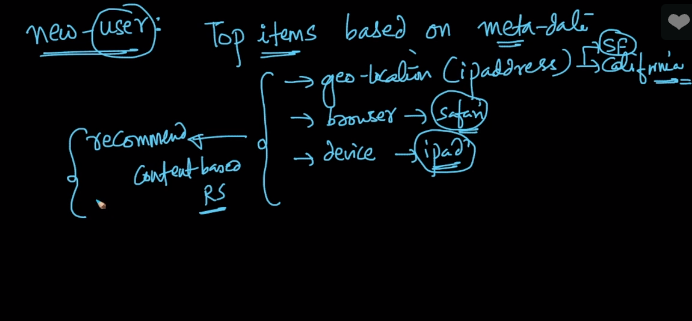 new-user: Top items based on meta-data
→ geo-location (ipaddress) → SF
→ California
→ browser → safari
recommend ←
→ device → ipad
Content-based
RS